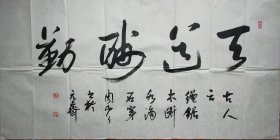 天道酬勤
古人
云
绳锯
木断
水滴
石穿